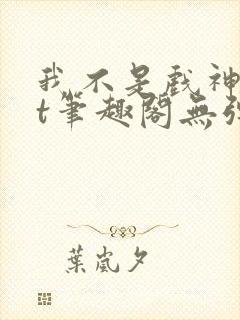 我不是戲神
t筆趣閣無
葉嵐夕